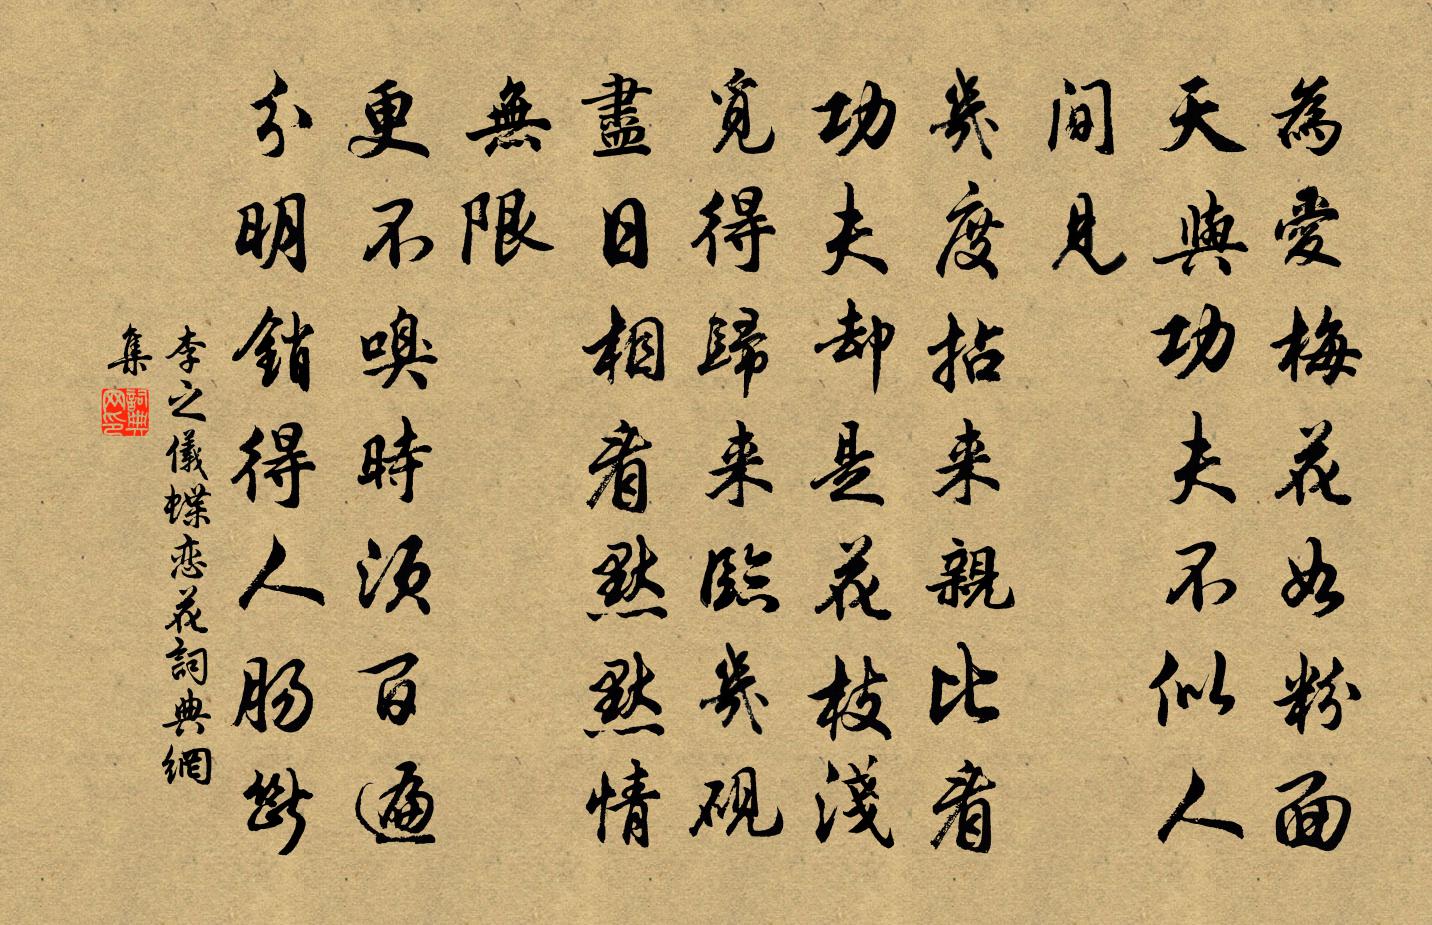 為愛梅花如粉面
天與功夫不似人
間見
幾度拈来親比看
功夫却是花枝淺
覓得歸来臨幾硯
盡日相看默默情
無限
更不嗅時須百遍
分明銷得人腸斷
李之儀蝶恋花詞典網
集
詞典
网印